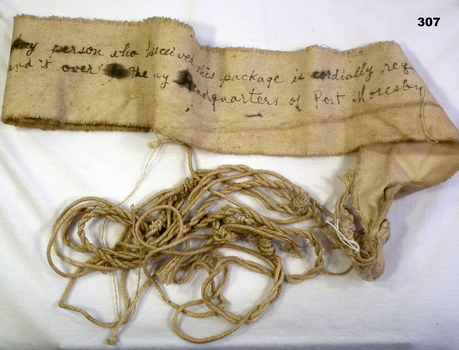 307
any person who received this package is cordially req
and it over the headquarters of Port Moresby